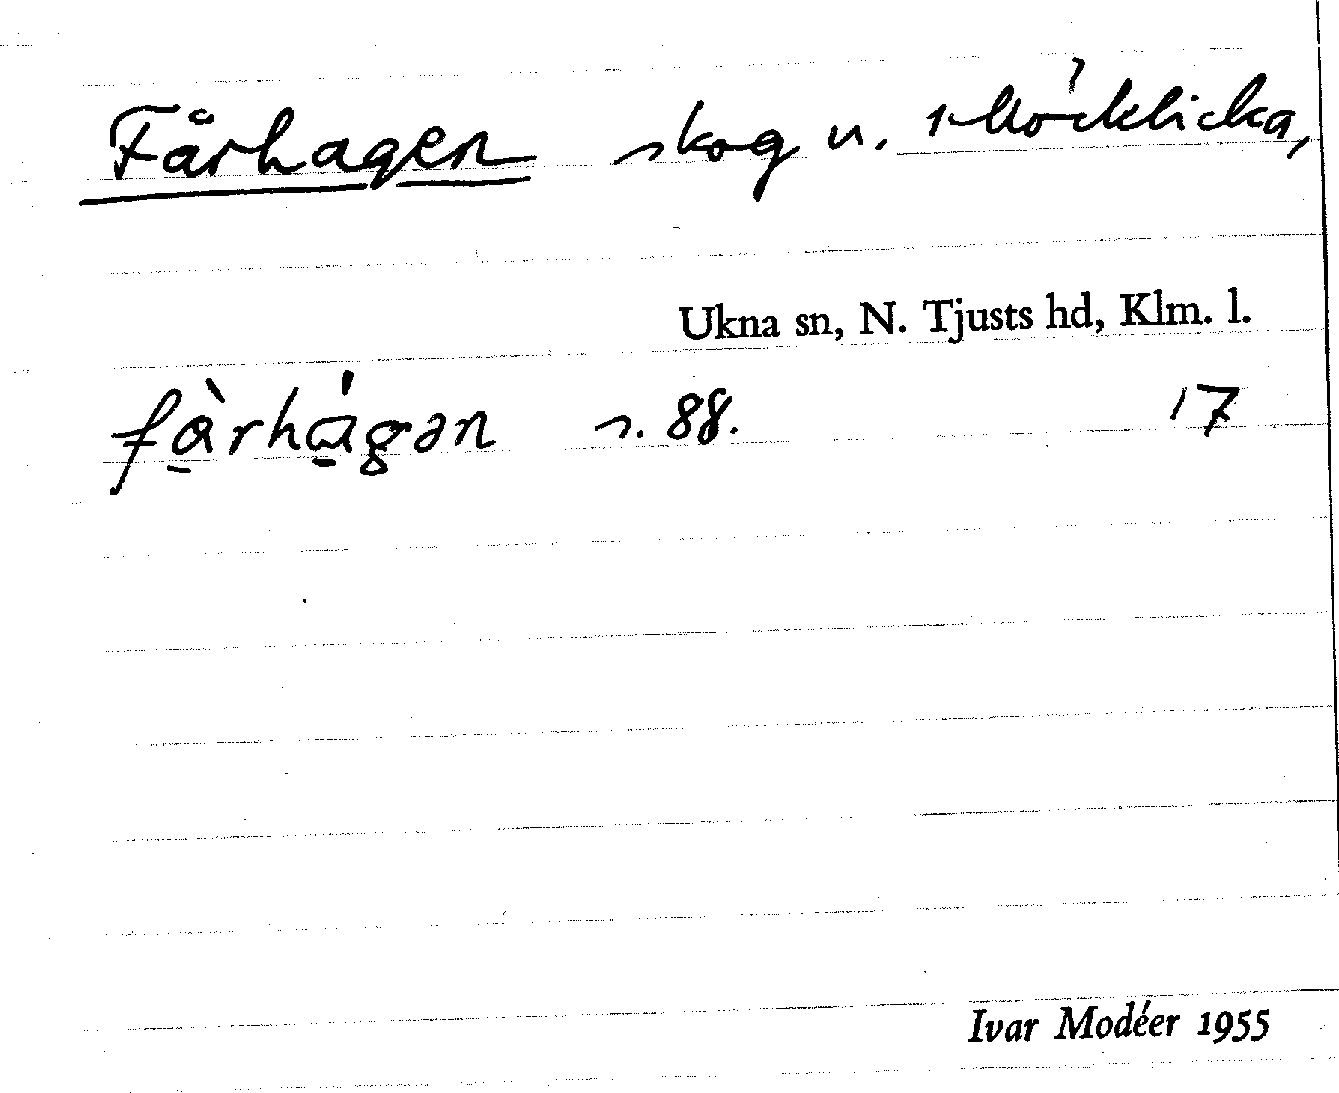 Fårhagen skog u.
Ukna sn, N. Tjusts hd, Klm. l.
fàrhágən s. 88. 17
Ivar Modéer 1955